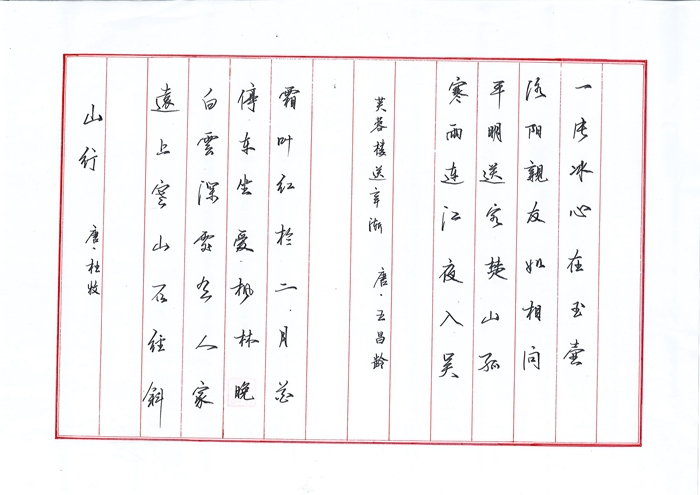 山行 唐·杜牧
遠上寒山石径斜
白雲深處有人家
停车坐爱枫林晚
霜叶红於二月花
芙蓉楼送辛渐 唐·王昌龄
寒雨连江夜入吴
平明送客楚山孤
洛阳親友如相问
一片冰心在玉壶